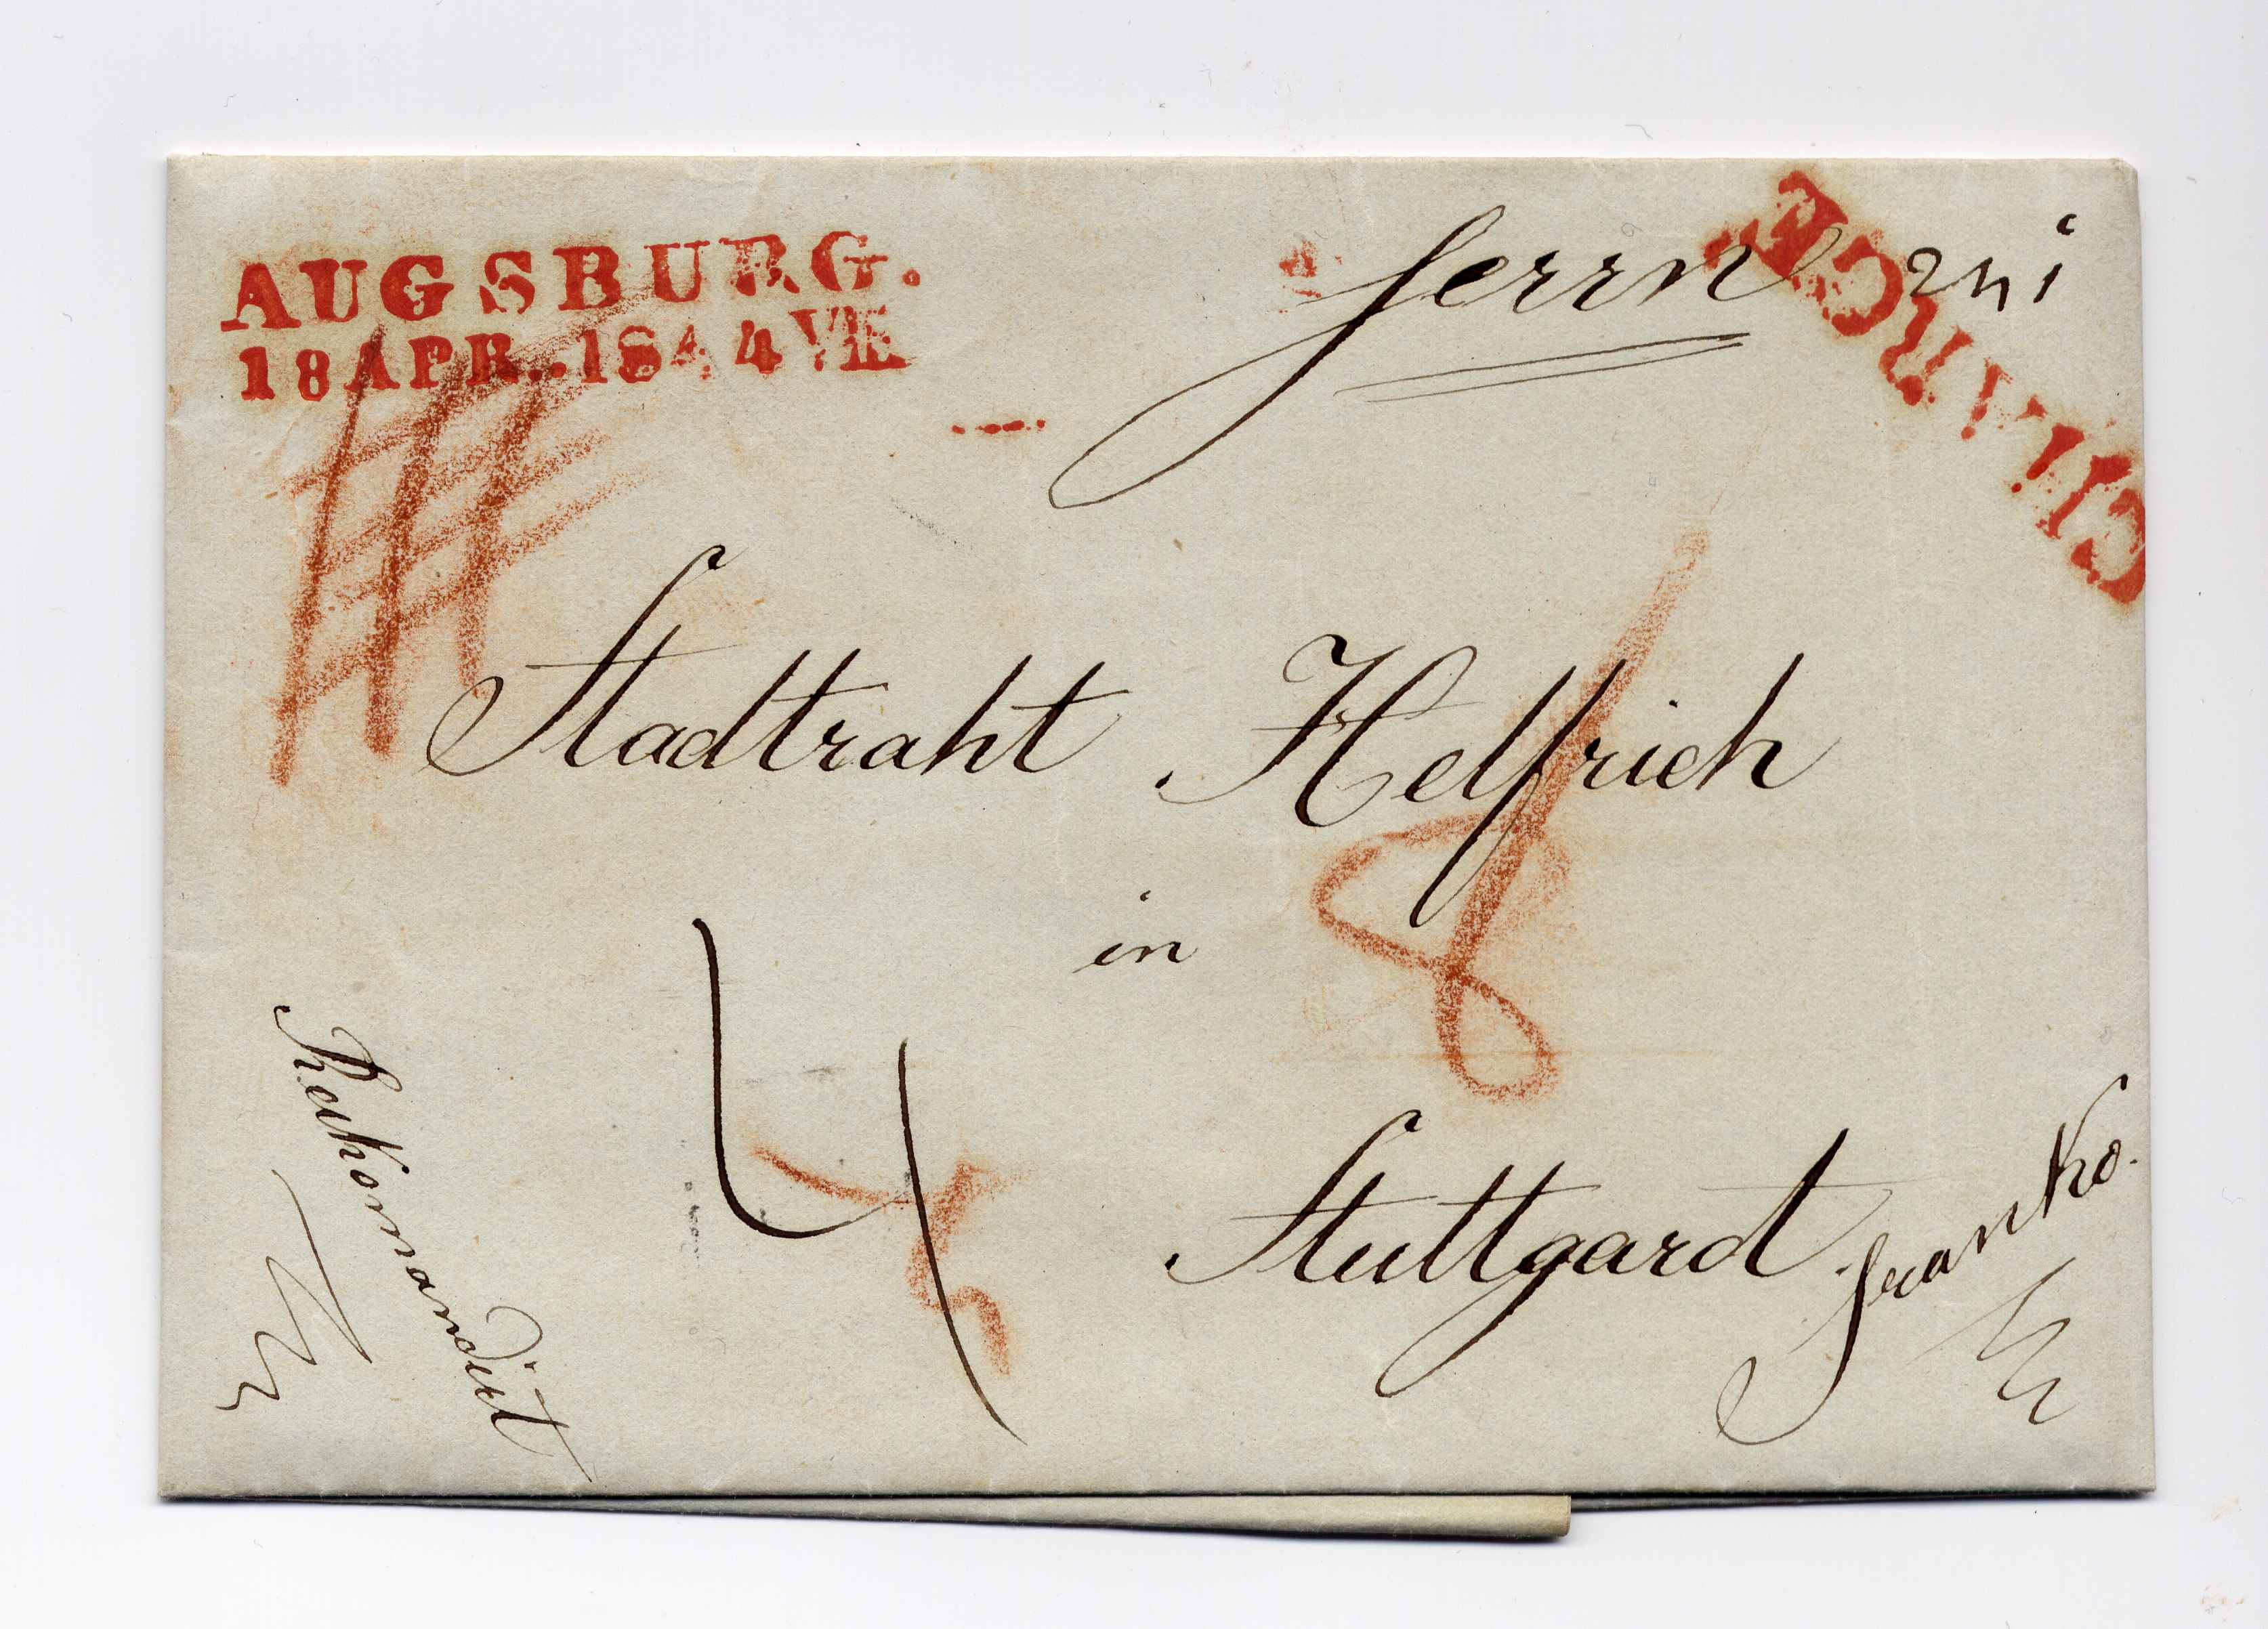 AUGSBURG.
18 APR. 1844 VII
Herrn
CHARGE
Stadtraht Helfrich
8
in
4
Stuttgard
Rekomandirt
franko.